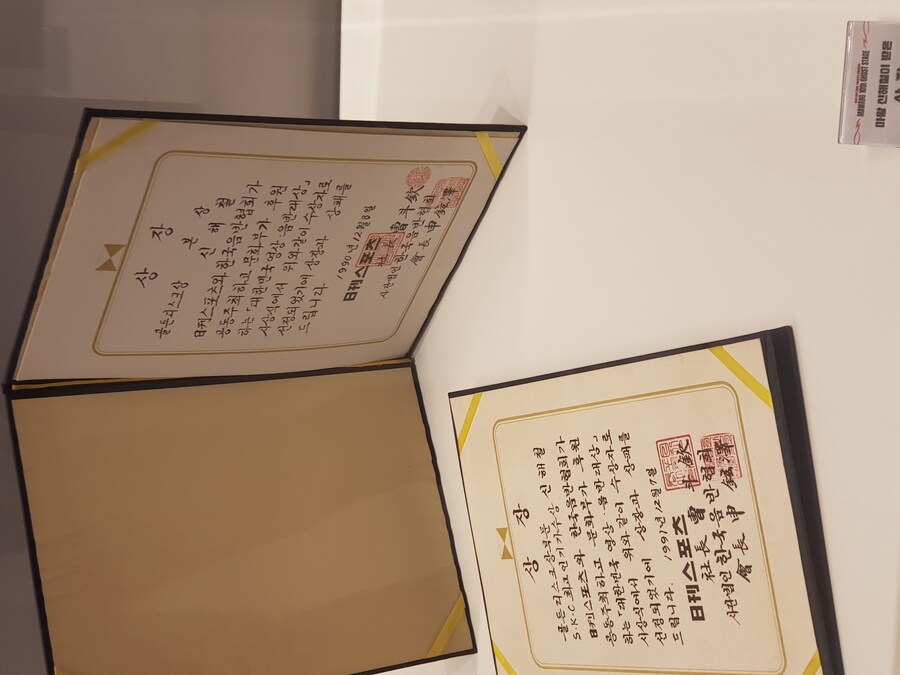 상 장
골든디스크상 본 상
신 해 철
日刊스포츠와 한국음반협회가
공동주최하고 문화부가 후원
하는 「대한민국 영상·음반대상」
시상식에서 위와같이 수상자로
선정되었기에 상장과 상패를
드립니다.
1990년 12월 8일
日刊스포츠
社長 曺斗欽
사단법인 한국음반협회
會長 申鉉澤
상 장
골든디스크상부문
S·K·C 최고인기가수상 신 해 철
日刊스포츠와 한국음반협회가
공동주최하고 문화부가 후원
하는 「대한민국 영상·음반대상」
시상식에서 위와같이 수상자로
선정되었기에 상장과 상패를
드립니다. 1991년 12월 7일
日刊스포츠
社長 曺斗欽
사단법인 한국음반협회
會長 申鉉澤
MAWANG 10th GHOST STAGE
마왕 신해철이 받은
상장